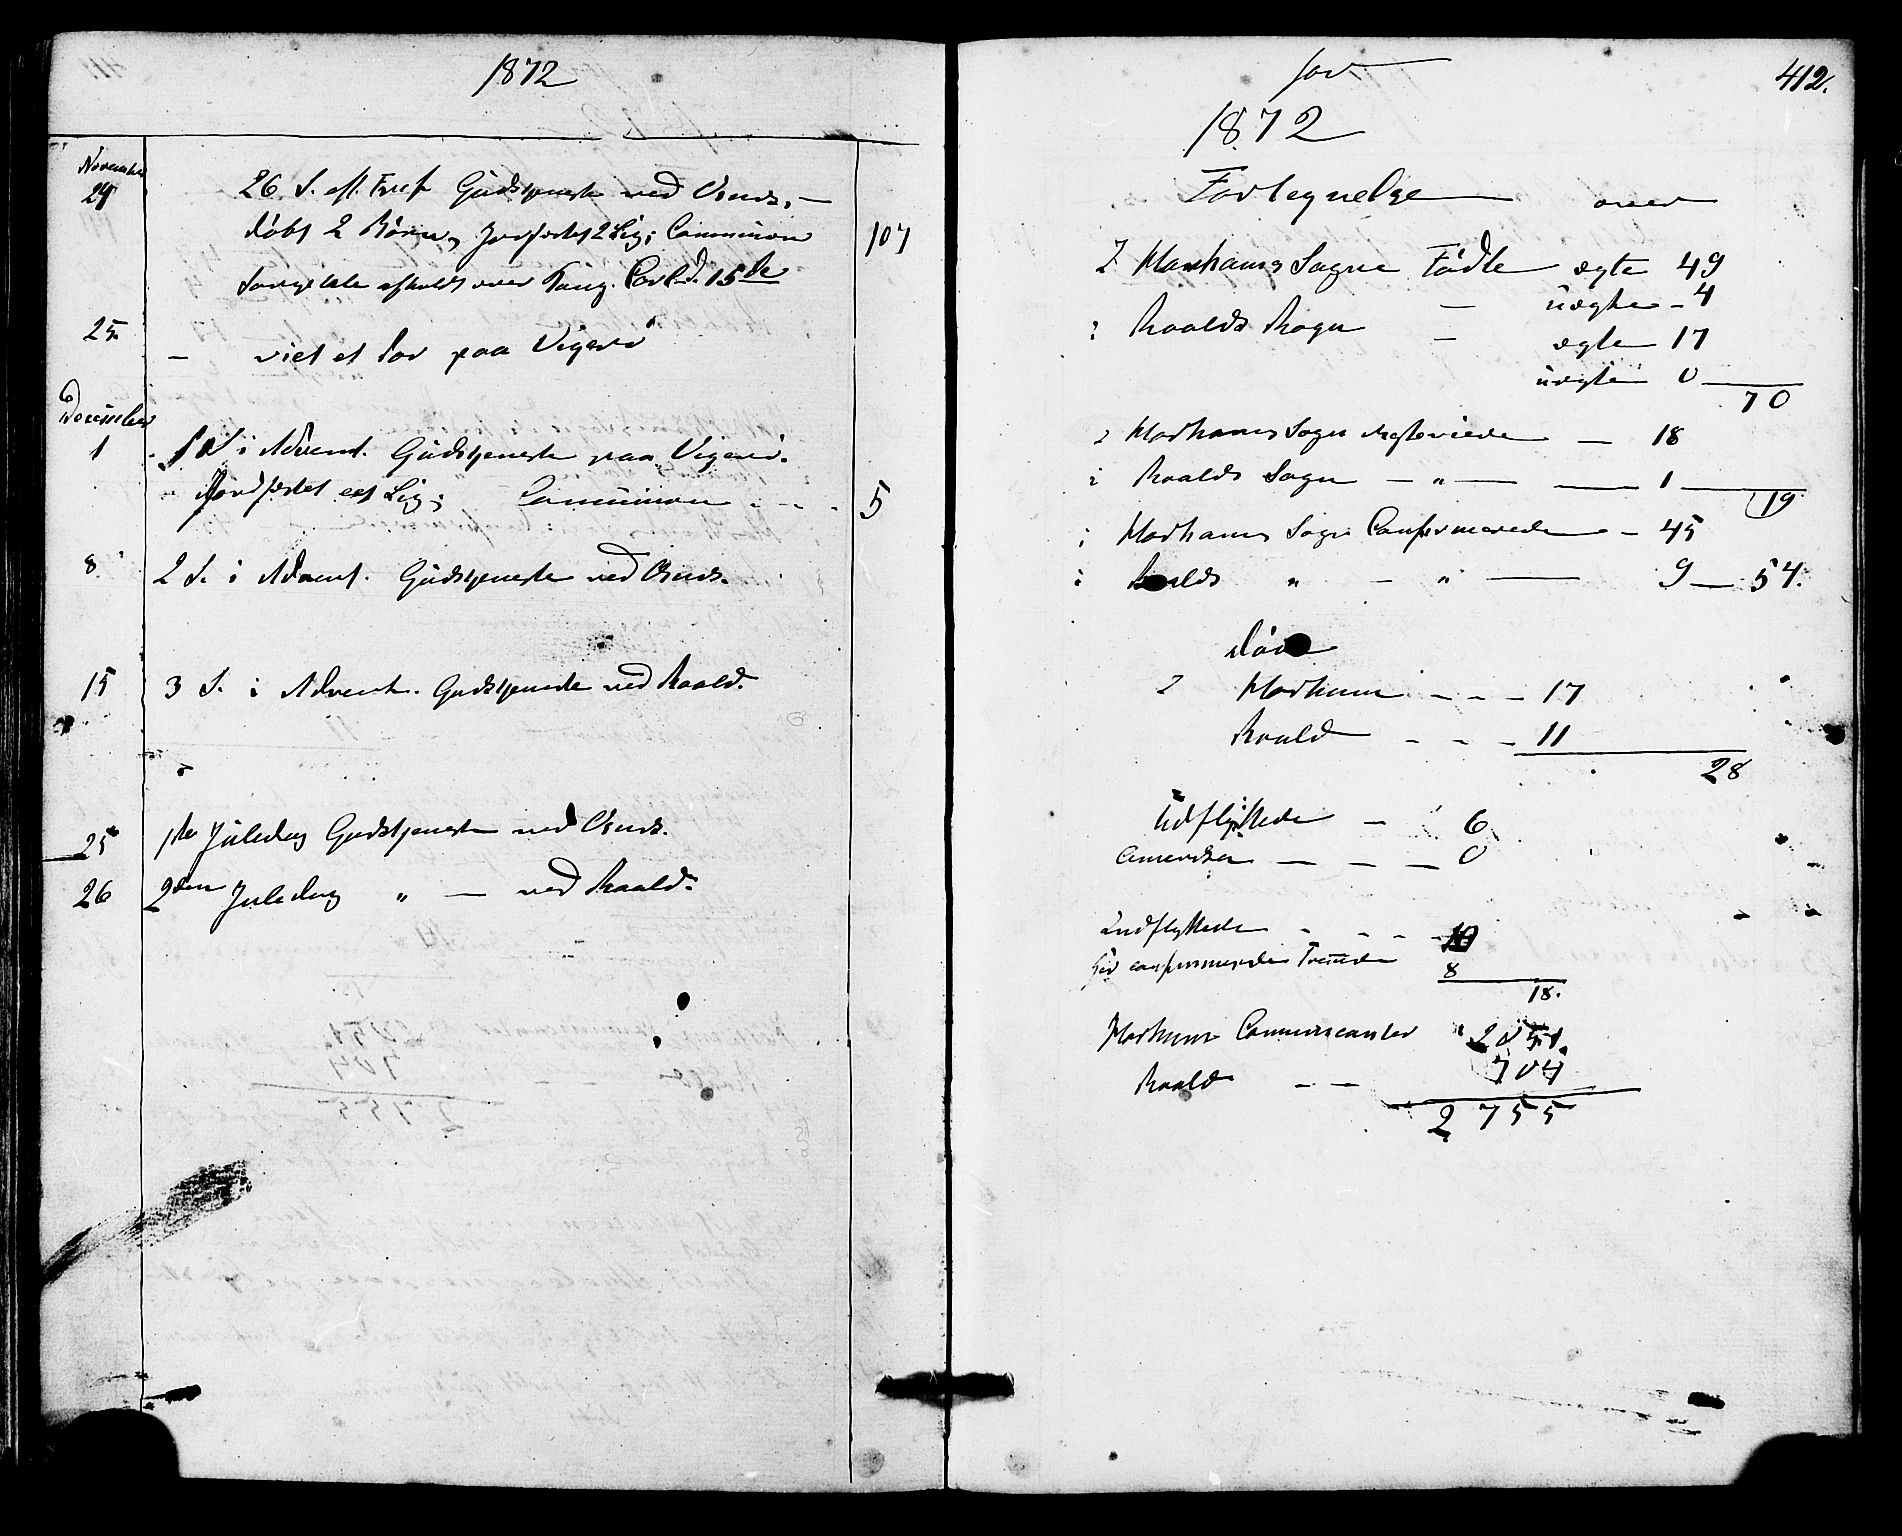 1872
November
24
26 S. eft. Tref Gudstjeneste ved Vernes.
døbt 2 Børn, Jordfæstet 2 Lig; Communion
107
Sørgetale afholdt over Kong. Carl d. 15de
25
- viet et Par paa Vigerø
December
1
1 S i Advent. Gudstjeneste paa Vigerø.
Jordfæstet eet Lig; Communion
5
8
2 S. i Advent. Gudstjeneste ved
15
3 S. i Advent. Gudstjeneste ved Roald.
25
1ste Juledag Gudstjeneste ved
26
2den Juledag " — ved Roald.
for
412.
1872
Fortegnelse over
I Harhams Sogn Fødte ægte 49
— uægte - 4
i Roalds Sogn — ægte 17
uægte 0
70
i Harhams Sogn Ægteviede — 18
i Roalds Sogn — " — 1
19
i Harhams Sogn Confirmerede - 45
i Roalds " - " — 9 — 54.
Døde
I Harham - - - 17
Roald - - - 11
28
Udflyttede - 6
America — — — 0
Indflyttede - - - - 10
her confirmerede Fremmede 8
18.
Harham Communicanter 2051.
Roald - - 704
2755